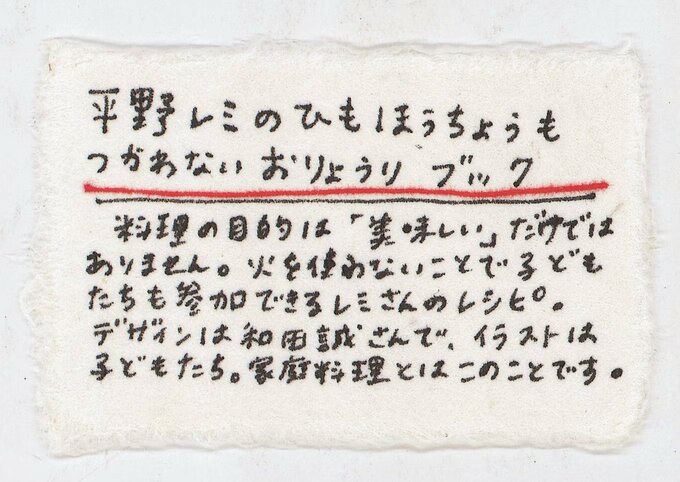 平野レミのひもほうちょうも
つかわないおりょうりブック
料理の目的は「美味しい」だけでは
ありません。火を使わないことで子ども
たちも参加できるレミさんのレシピ。
デザインは和田誠さんで、イラストは
子どもたち。家庭料理とはこのことです。